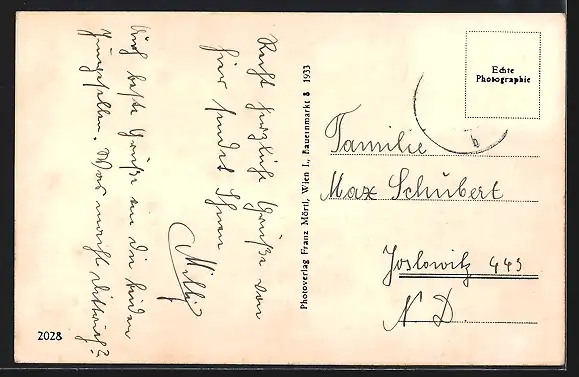 Recht herzliche Grüße von
hier sendet Ihnen
Milli
Auch beste Grüße an die beiden
Junggesellen. Was macht Dittrich?
2028
Photoverlag Franz Mörtl, Wien I., Bauernmarkt 8 1933
Echte
Photographie
b
Familie
Max Schubert
Joslowitz 443
N D.